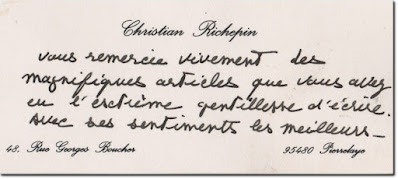 Christian Richepin
vous remercie vivement des
magnifiques articles que vous avez
eu l'extrême gentillesse d'écrire.
Avec ses sentiments les meilleurs_
48, Rue Georges Boucher 95480 Pierrelaye